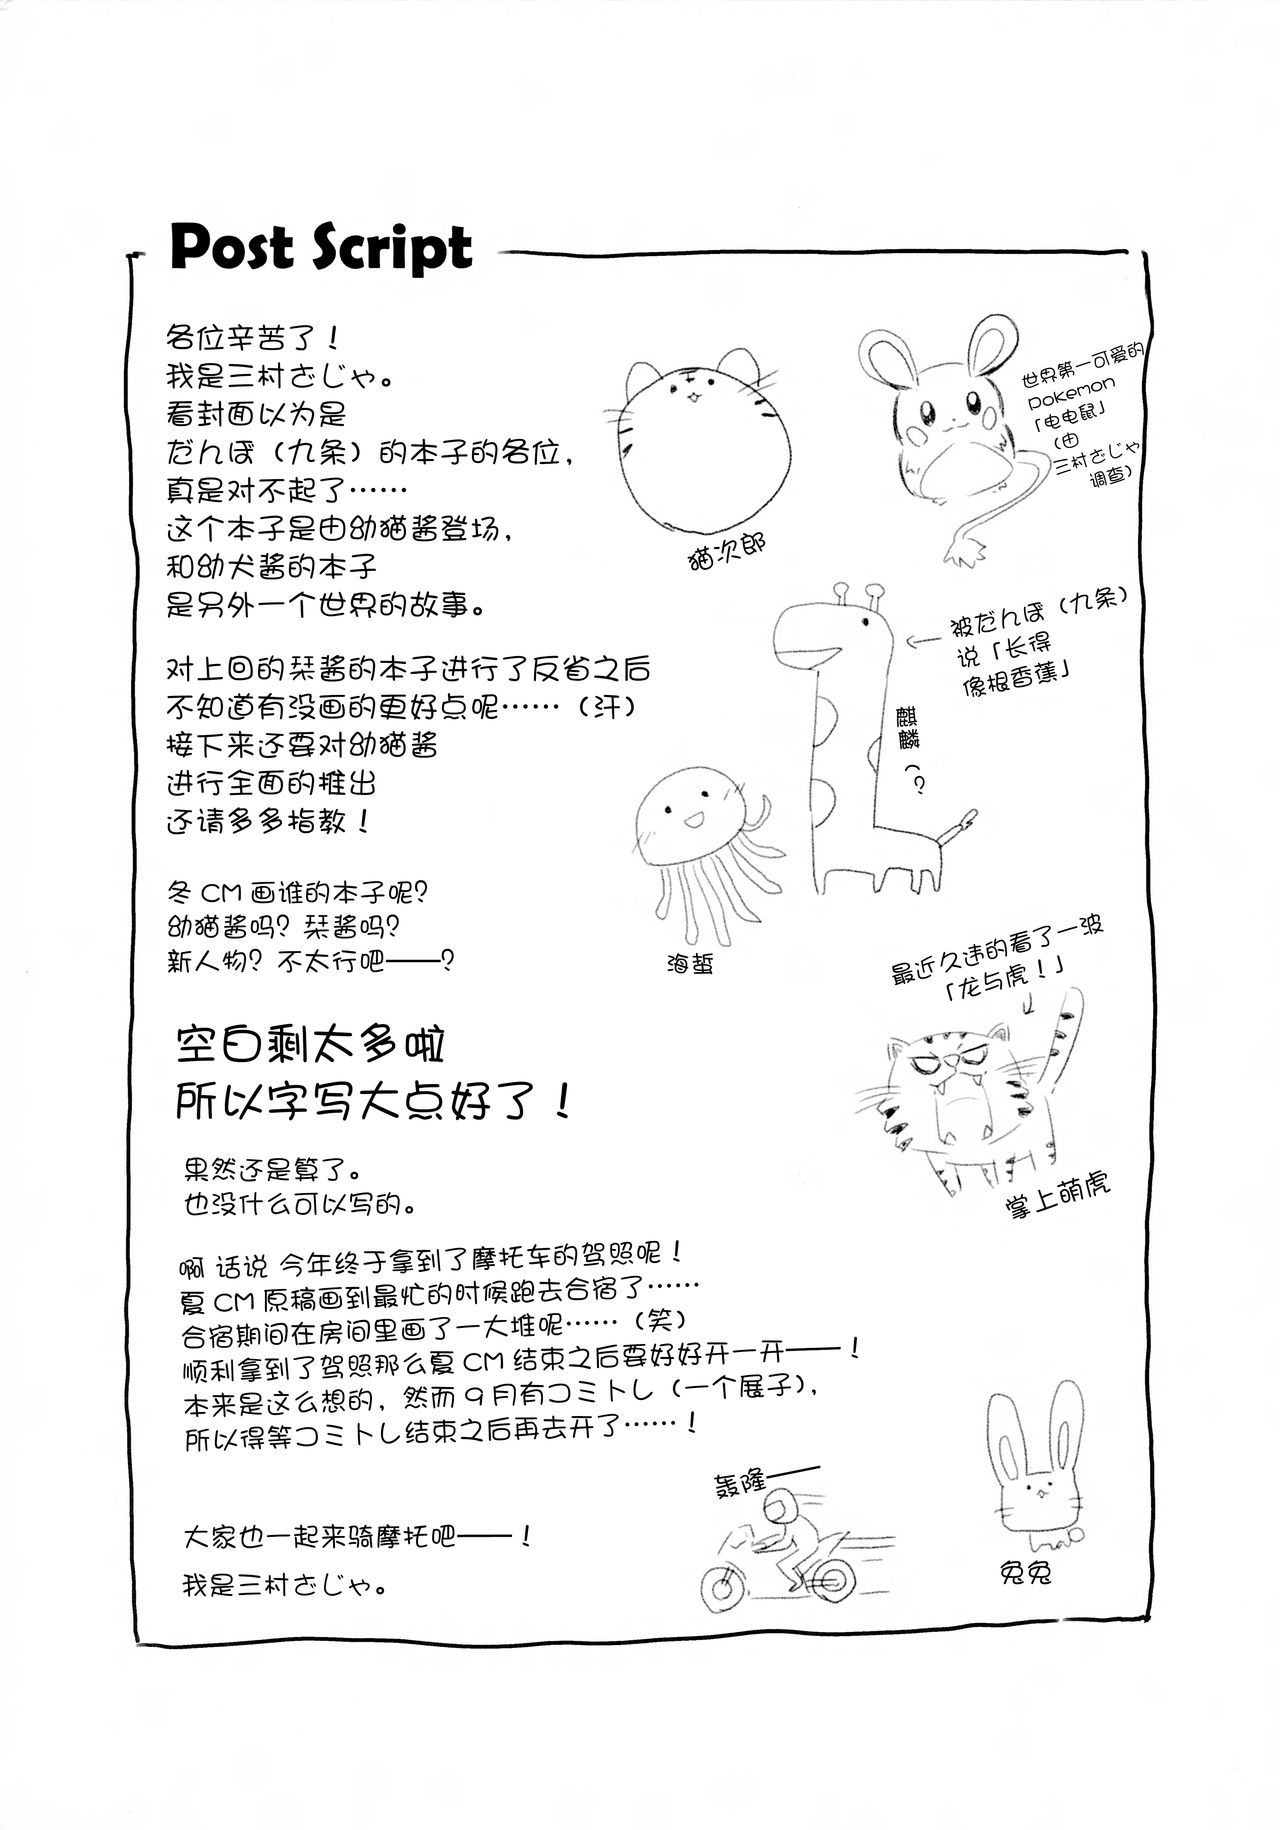 Post Script
各位辛苦了！
我是三村ざじゃ。
看封面以为是
だんぼ（九条）的本子的各位，
真是对不起了……
这个本子是由幼猫酱登场，
和幼犬酱的本子
是另外一个世界的故事。
对上回的栞酱的本子进行了反省之后
不知道有没画的更好点呢……（汗）
接下来还要对幼猫酱
进行全面的推出
还请多多指教！
冬CM画谁的本子呢？
幼猫酱吗？栞酱吗？
新人物？不太行吧——？
空白剩太多啦
所以字写大点好了！
果然还是算了。
也没什么可以写的。
啊 话说 今年终于拿到了摩托车的驾照呢！
夏CM原稿画到最忙的时候跑去合宿了……
合宿期间在房间里画了一大堆呢……（笑）
顺利拿到了驾照那么夏CM结束之后要好好开一开——！
本来是这么想的，然而9月有コミトレ（一个展子），
所以得等コミトレ结束之后再去开了……！
大家也一起来骑摩托吧——！
我是三村ざじゃ。
猫次郎
世界第一可爱的
pokemon
「电电鼠」
（由
三村ざじゃ
调查）
←被だんぼ（九条）
说「长得
像根香蕉」
麒麟（？
海蜇
最近久违的看了一波
「龙与虎！」
掌上萌虎
轰隆——
兔兔